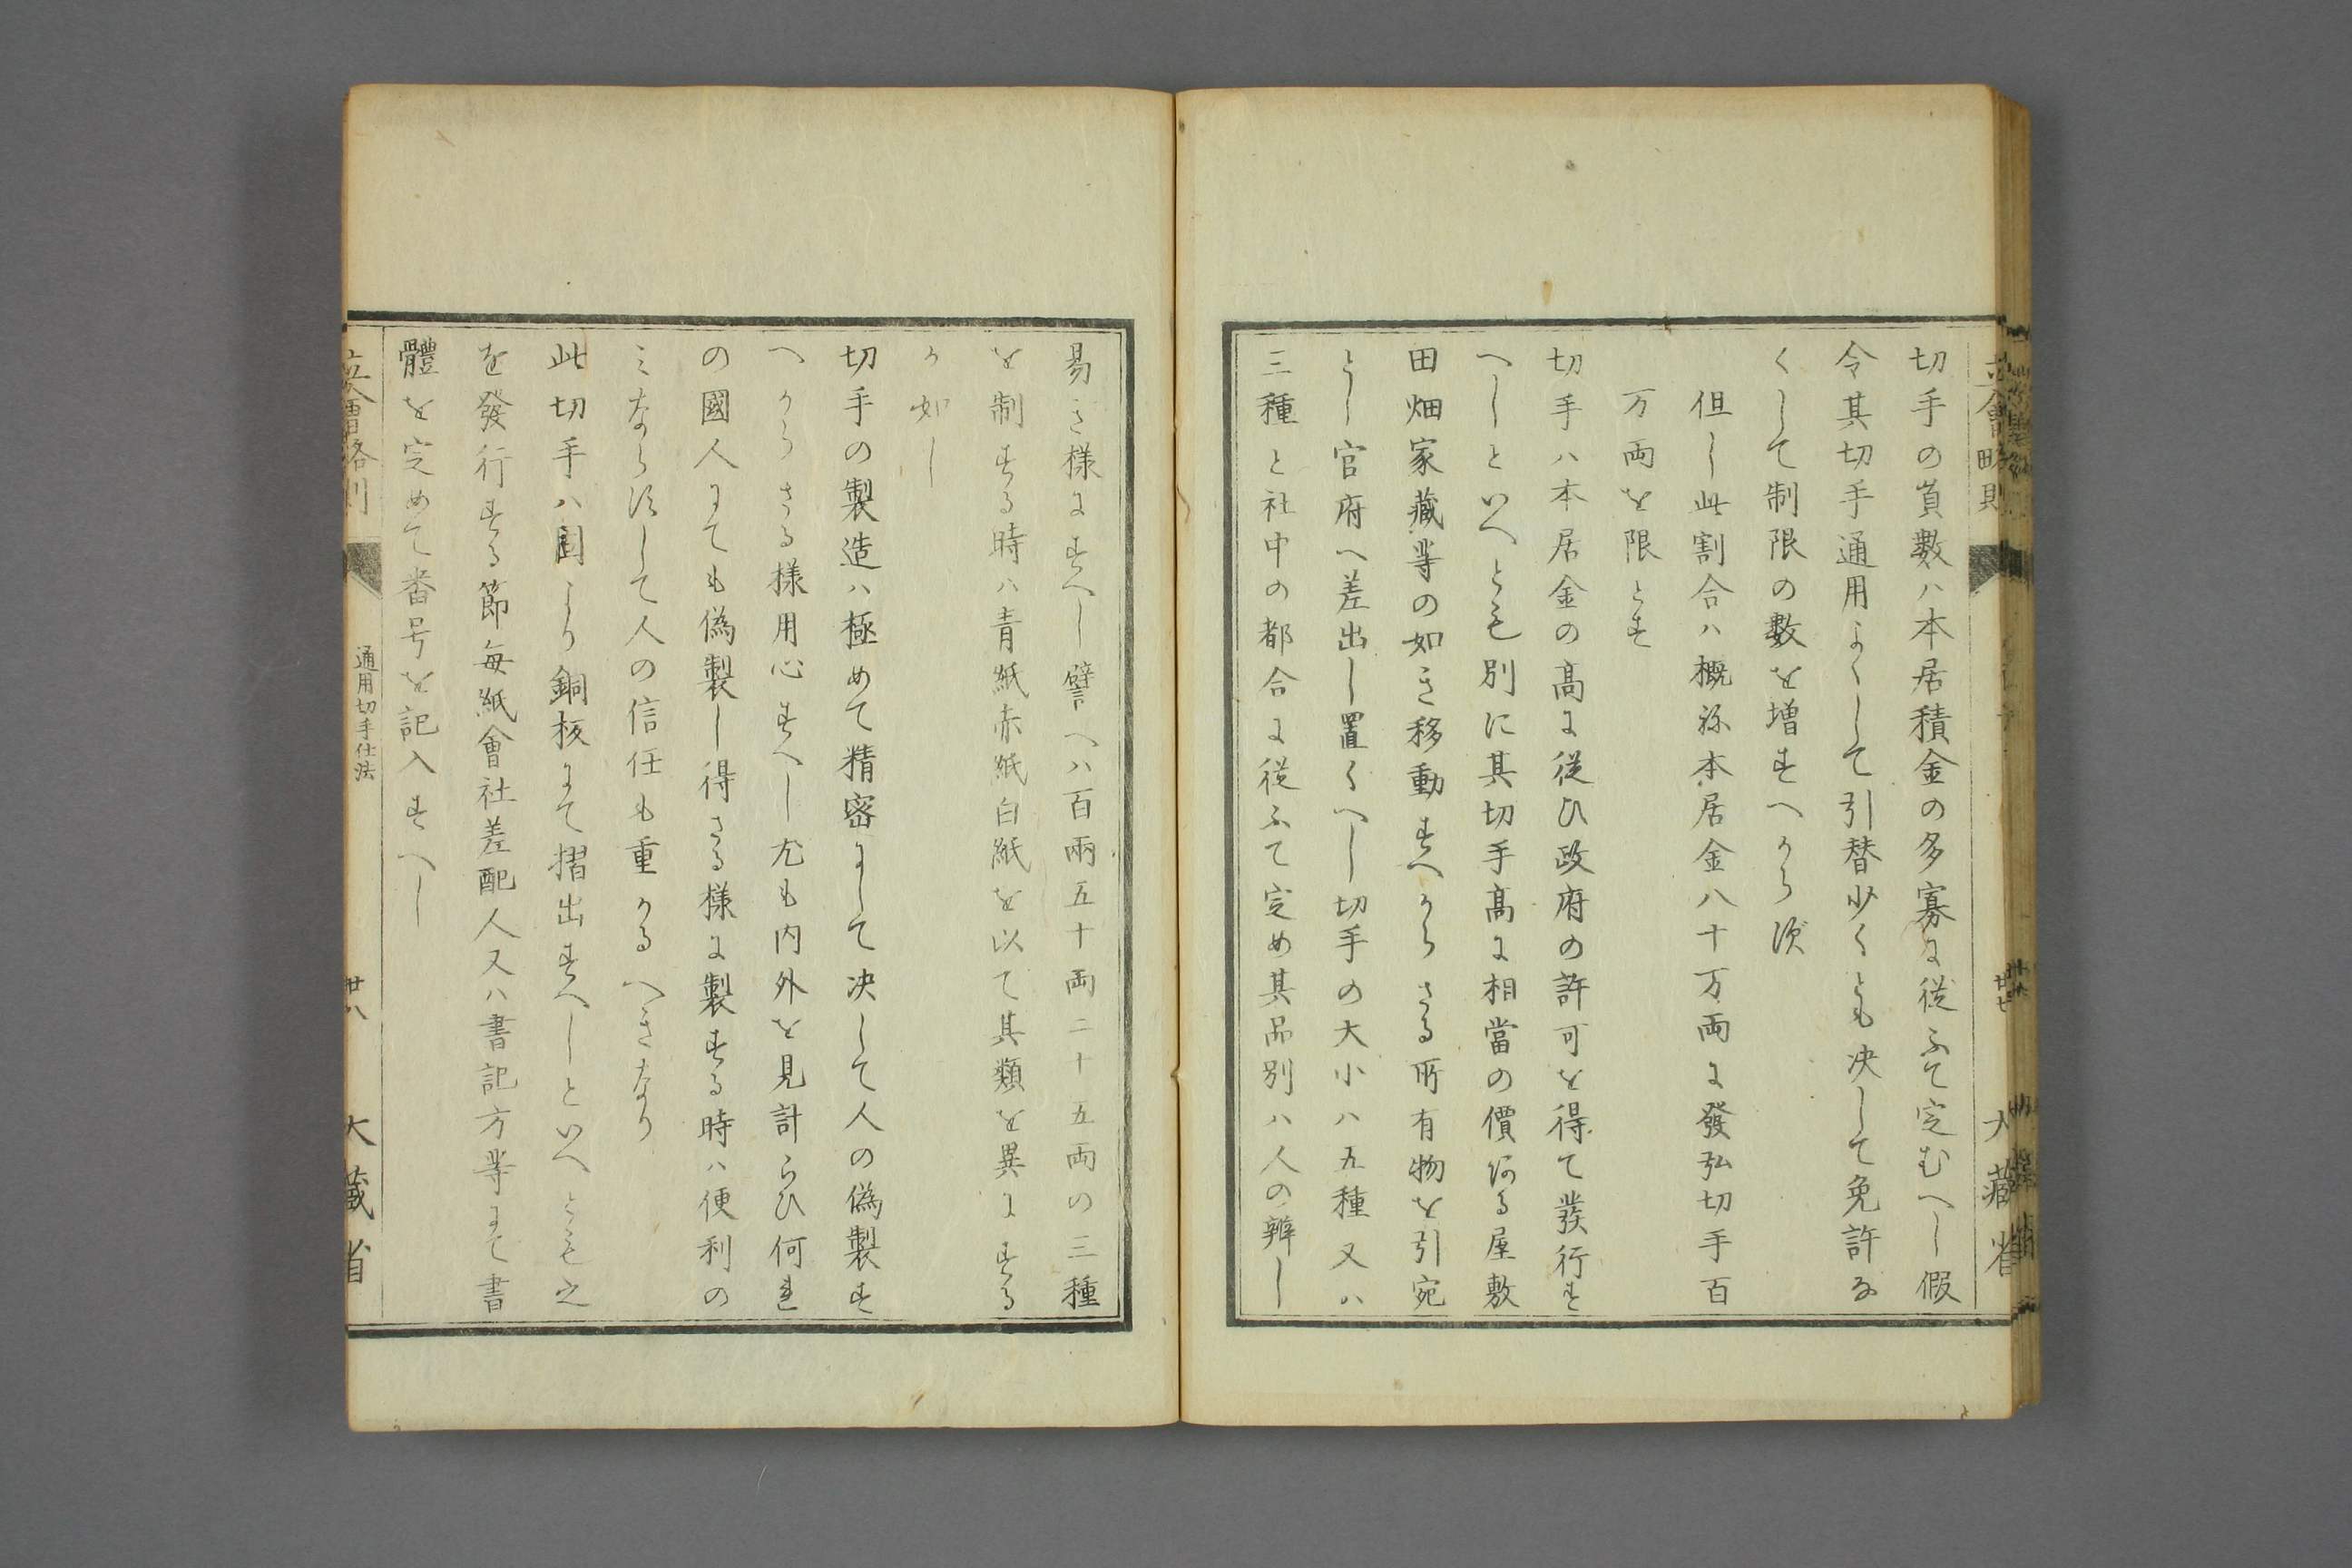 立會畧則
廿七
大藏省
切手の員數ハ本居積金の多寡に從ふて定むへし假
令其切手通用よくして引替少くとも决して免許な
くして制限の數を増すへからす
但し此割合ハ概祢本居金八十万両に發弘切手百
万両を限とす
切手ハ本居金の髙に従ひ政府の許可を得て發行す
へしといへとも別に其切手髙に相當の價ある屋敷
田畑家藏等の如き移動すへからさる所有物を引宛
とし官府へ差出し置くへし切手の大小ハ五種又ハ
三種と社中の都合に從ふて定め其品別ハ人の辨し
易き様にすへし譬へハ百兩五十両二十五両の三種
を制する時ハ青紙赤紙白紙を以て其類を異にする
か如し
切手の製造ハ極めて精密にして决して人の偽製す
へからさる様用心すへし尤も内外を見計らひ何れ
の國人にても偽製し得さる様に製する時ハ便利の
ミならすして人の信任も重かるへきなり
此切手ハ圖より銅板にて摺出すへしといへとも之
を發行する節毎紙會社差配人又ハ書記方等にて書
體を定めて番号を記入すへし
立會略則
通用切手仕法
廿八
大藏省